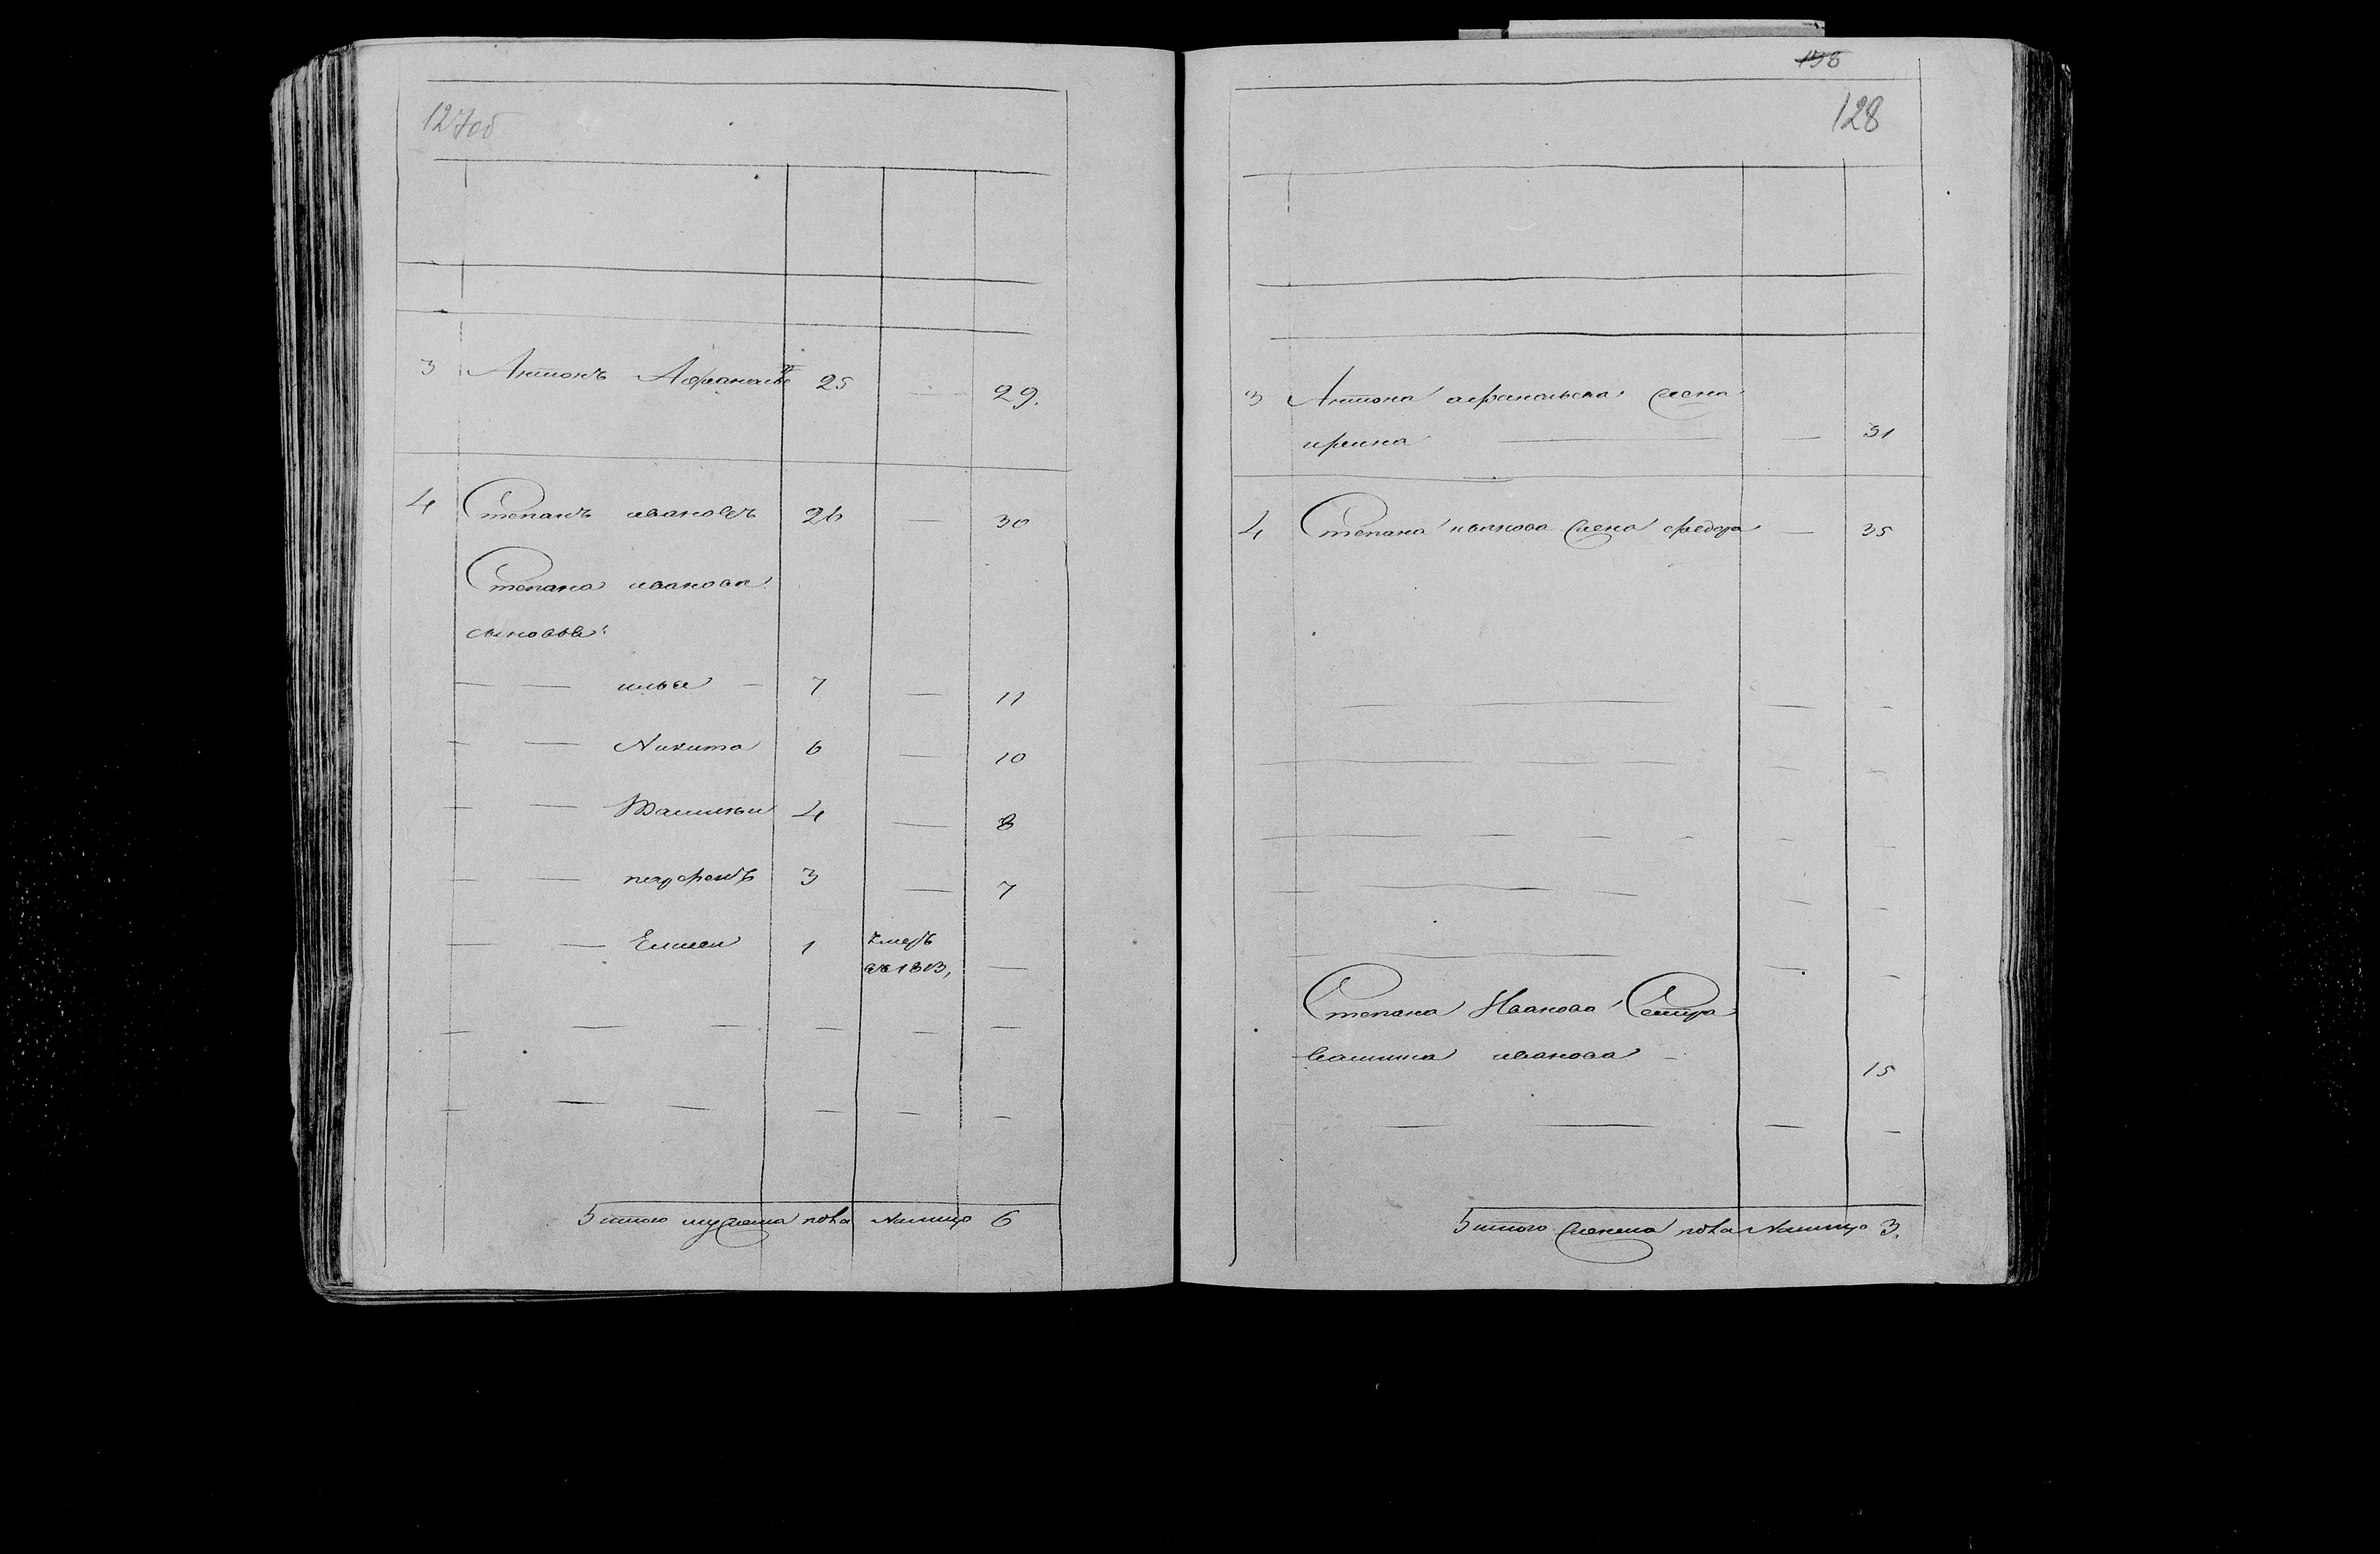 127об
3 Антонъ Афанасьевъ 25 — 29.
4 Степанъ ивановъ 26 — 30
Степана иванова
сыновья:
— — илья — 7 — 11
— — Никита 6 — 10
— — 4 — 8
— — парфенъ 3 — 7
— — Елисеи 1 умеръ
въ 1813, —
Итого мужеска пола Налицо 6
198
128
3 Антона афанасьева жена
ирина — — 31
4 Степана иванова жена федора — 35
Степана Иванова Сестра
иванова — 15
Итого женска пола Налицо 3.